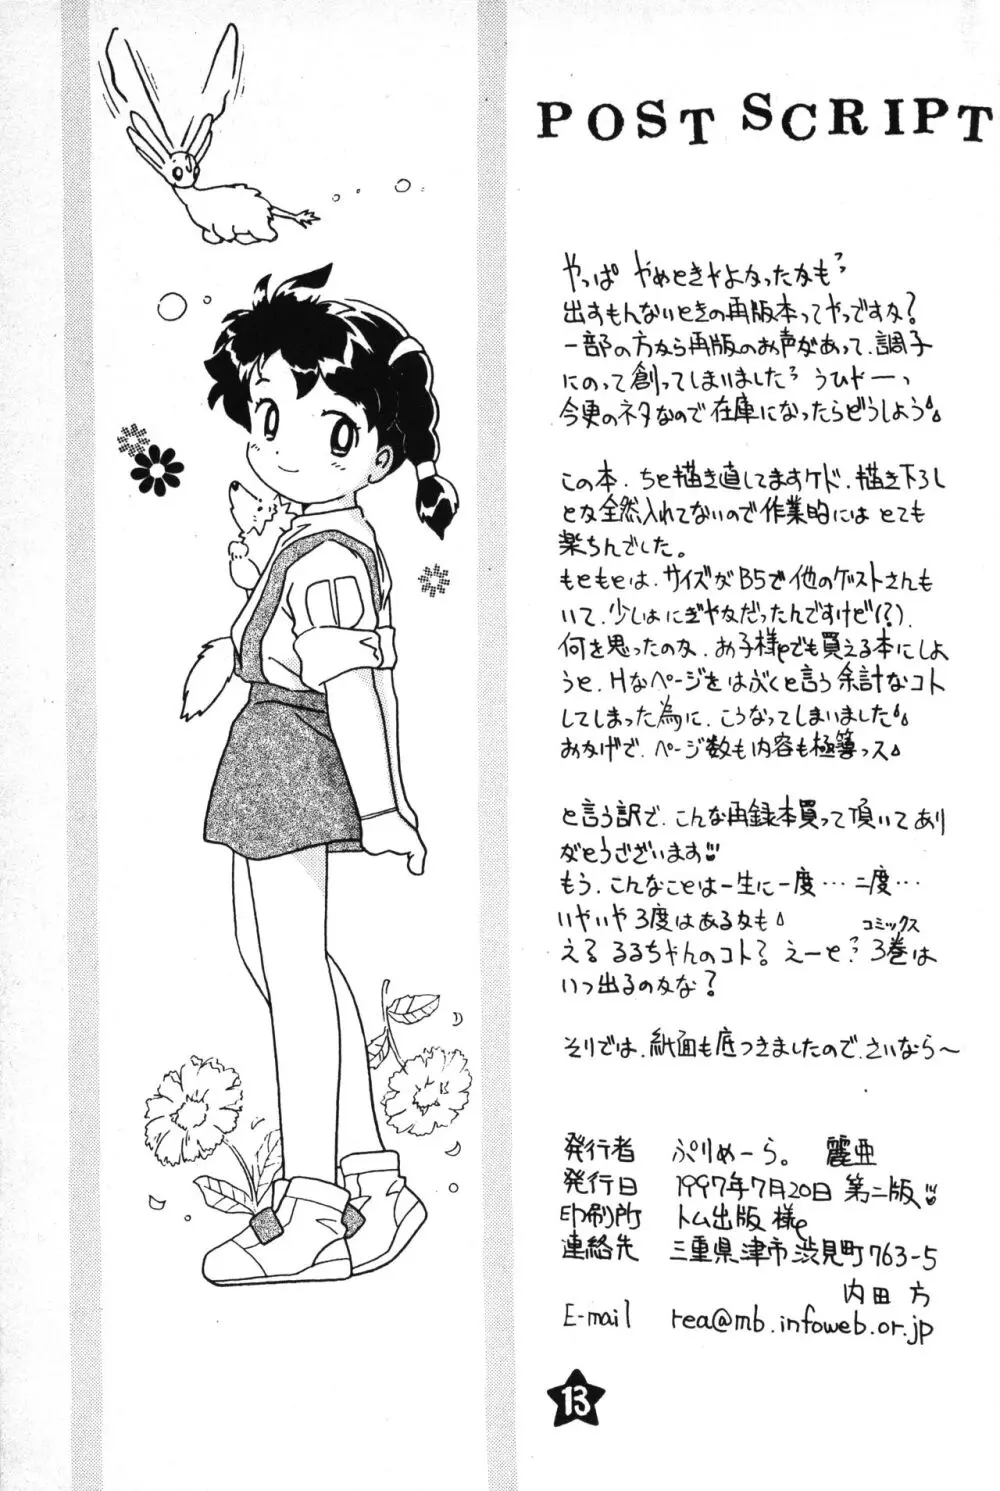 POST SCRIPT
やっぱ やめときゃよかったかも?
出すもんないときの再版本ってやつですか?
一部の方から再版のお声があって、調子
にのって創ってしまいました? うひゃーっ
今更のネタなので在庫になったらどうしよう
この本、ちと描き直してますケド、描き下ろし
とか全然入れてないので作業的にはとても
楽ちんでした。
もともとは、サイズがB5で他のゲストさんも
いて、少しはにぎやかだったんですけど(?)、
何を思ったのか、お子様でも買える本にしよ
うと、Hなページをはぶくと言う余計なコト
してしまった為に、こうなってしまいました
おかげで、ページ数も内容も極薄っス
と言う訳で、こんな再録本買って頂いてあり
がとうございます
もう、こんなことは一生に一度…二度…
いやいや3度はあるかも
え? るるちゃんのコト? えーと? 3巻は
コミックス
いつ出るのかな?
そりでは、紙面も底つきましたので、さいなら〜
発行者 ぷりめーら。 麗亜
発行日 1997年7月20日 第二版
印刷所 トム出版 様
連絡先 三重県津市渋見町763-5
内田 方
E-mail rea@mb.infoweb.or.jp
13